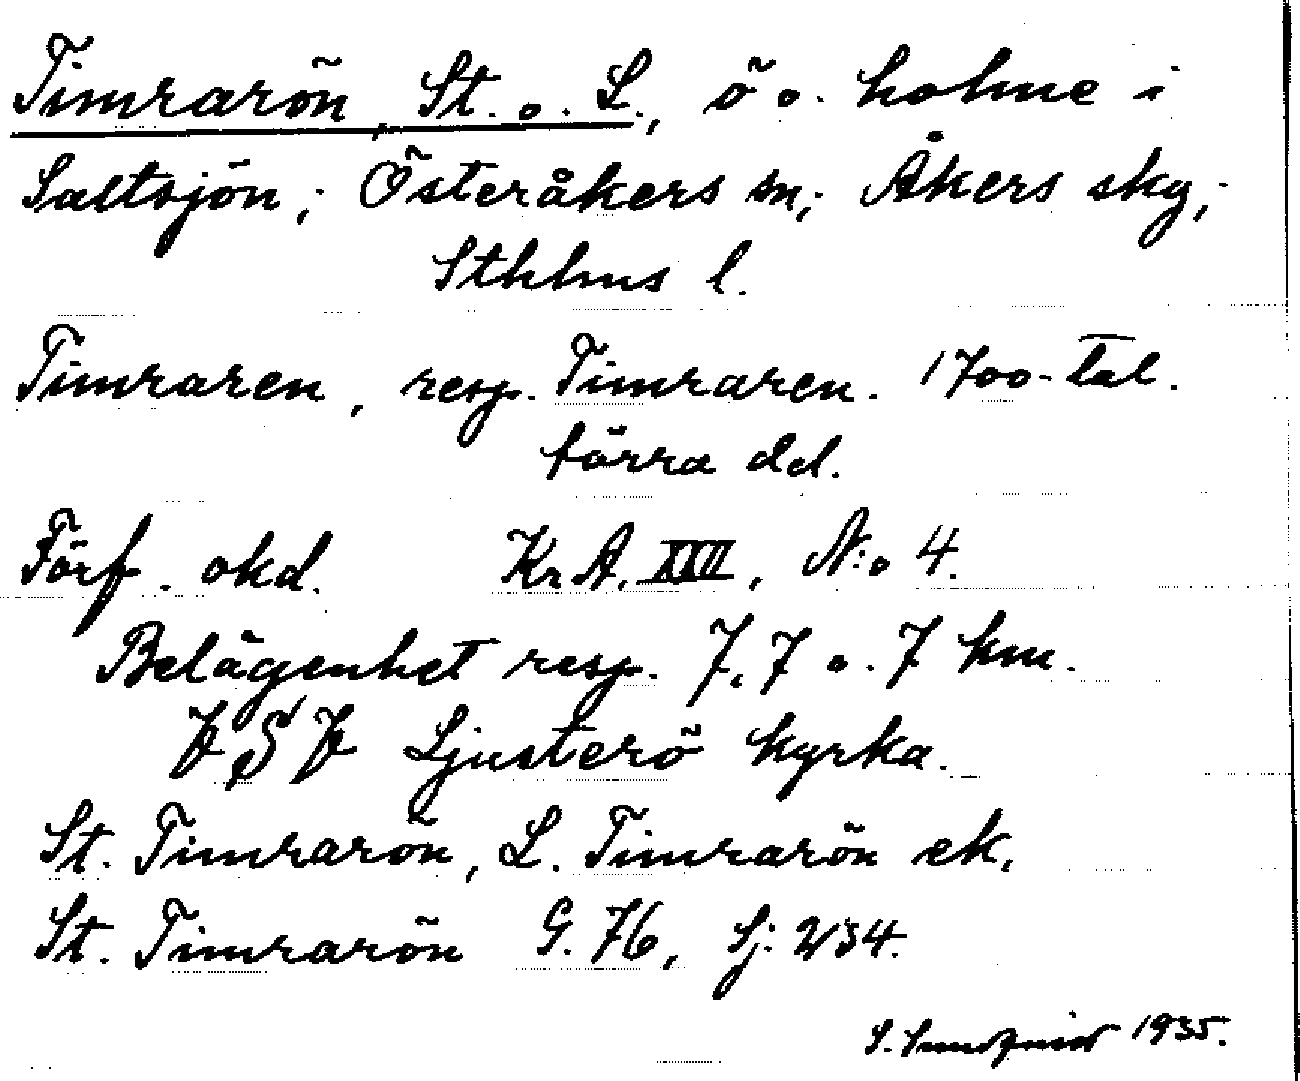 Timrarön, St. o. L., ö o. holme i
Saltsjön; Österåkers sn; Åkers skg;
Sthlms l.
Timraren, resp. Timraren. 1700-tal.
förra del.
Förf. okd. Kr.A. XVII, N:o 4.
Belägenhet resp. 7,7 o. 7 km.
Ljusterö kyrka.
St. Timrarön, L. Timrarön ek.
St. Timrarön G. 76, Sj: 234.
1935.